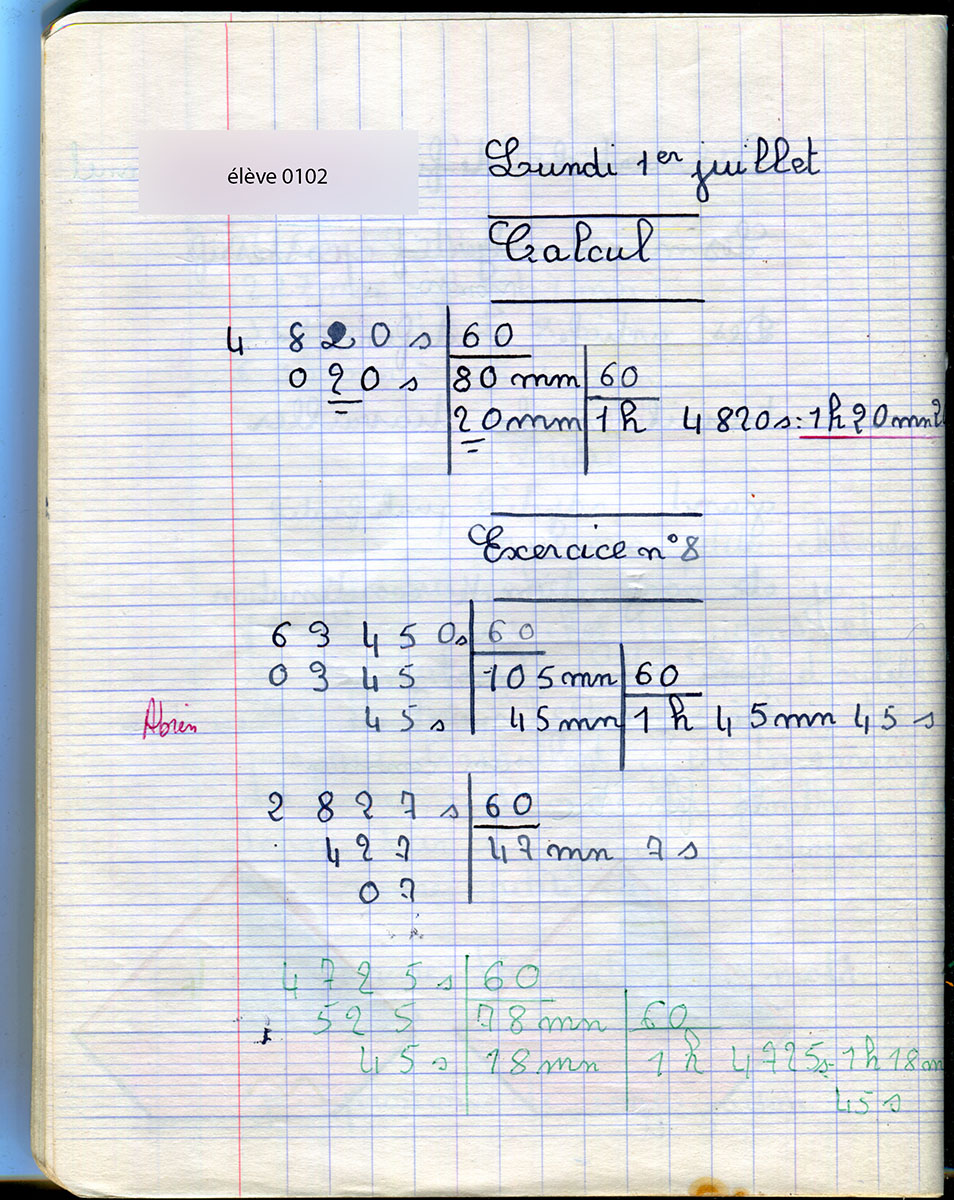 élève 0102
Lundi 1er juillet
Calcul
4 820 s 60
0 20 s 80 mn 60
20 mn 1 h 4 820 s = 1 h 20 mn 2
Exercice n°8
6 3 4 5 0s 60
0 3 4 5 105 mn 60
45 s 45 mn 1 h 45 mn 45 s
2 8 2 7 s 60
4 2 7 47 mn 7 s
0 7
4 7 2 5 s 60
5 2 5 78 mn 60
45 s 18 mn 1 h 4725s = 1 h 18 m
45 s